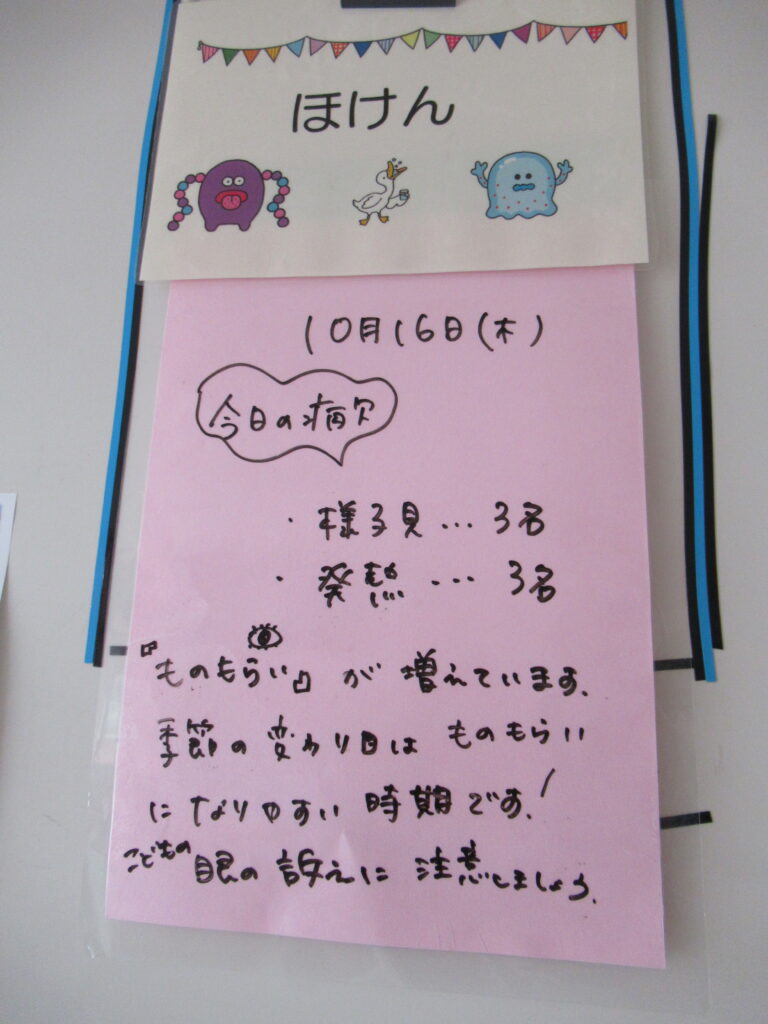 ほけん
10月16日(木)
今日の病欠
・様子見…3名
・発熱…3名
『ものもらい』が増えています。
季節の変わり目はものもらい
になりやすい時期です!
こどもの眼の訴えに注意しましょう。